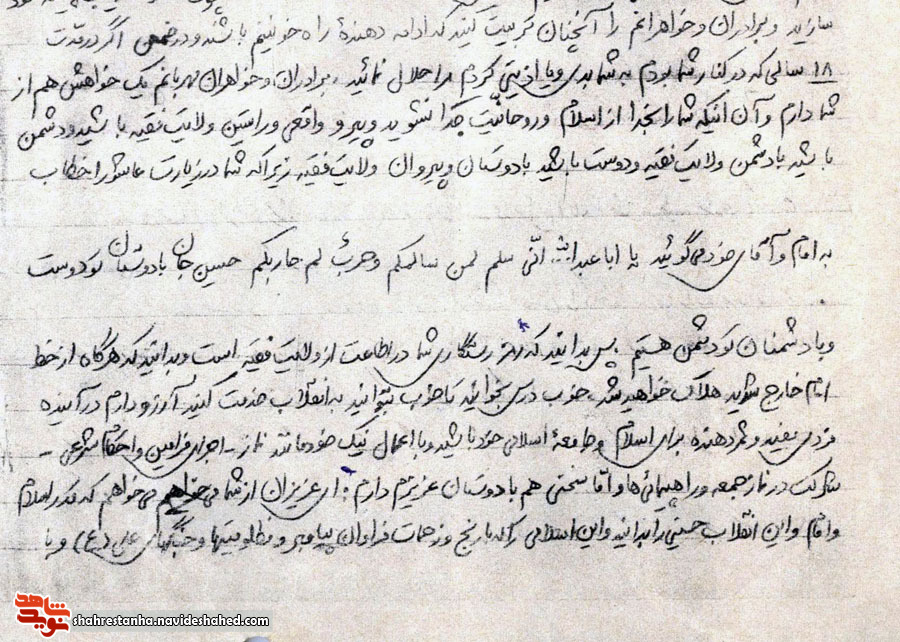 سازید و برادران و خواهرانم را آنچنان تربیت کنید که ادامه دهندهٔ راه خونینم باشند و در ضمن اگر در مدت
۱۸ سالی که در کنار شما بودم به شما بدی و یا اذیتی کردم مرا حلال نمائید . برادران و خواهران مهربانم یک خواهش هم از
شما دارم و آن اینکه شما را بخدا از اسلام و روحانیت جدا نشوید و پیرو واقعی و راستین ولایت فقیه باشید و دشمن
باشید با دشمن ولایت فقیه و دوست باشید با دوستان و پیروان ولایت فقیه زیرا که شما در زیارت عاشورا خطاب
به امام و آقای خود می‌گوئید یا اباعبدالله انّی سلم لمن سالمکم و حربٌ لم حاربکم حسین جان با دوستان تو دوست
و با دشمنان تو دشمن هستیم . پس بدانید که رستگاری شما در اطاعت از ولایت فقیه است و بدانید که هرگاه از خط
امام خارج شوید هلاک خواهید شد . خوب درس بخوانید تا خوب بتوانید به انقلاب خدمت کنید آرزو دارم در آینده
فردی مفید و ثمر دهنده برای اسلام و جامعهٔ اسلامی خود باشید و با اعمال نیک خود مانند نماز - اجرای فرامین و احکام شرعی -
شرکت در نماز جمعه و راهپیمائی‌ها و امّا سخنی هم با دوستان عزیزم دارم : ای عزیزان از شما می‌خواهم می‌خواهم که قدر اسلام
و امام و این انقلاب حسینی را بدانید و این اسلامی را که با رنج و زحمات فراوان پیامبر و مظلومیتها و جنگهای علی (ع) و با
شاهد
نوید
shahrestanha.navideshahed.com